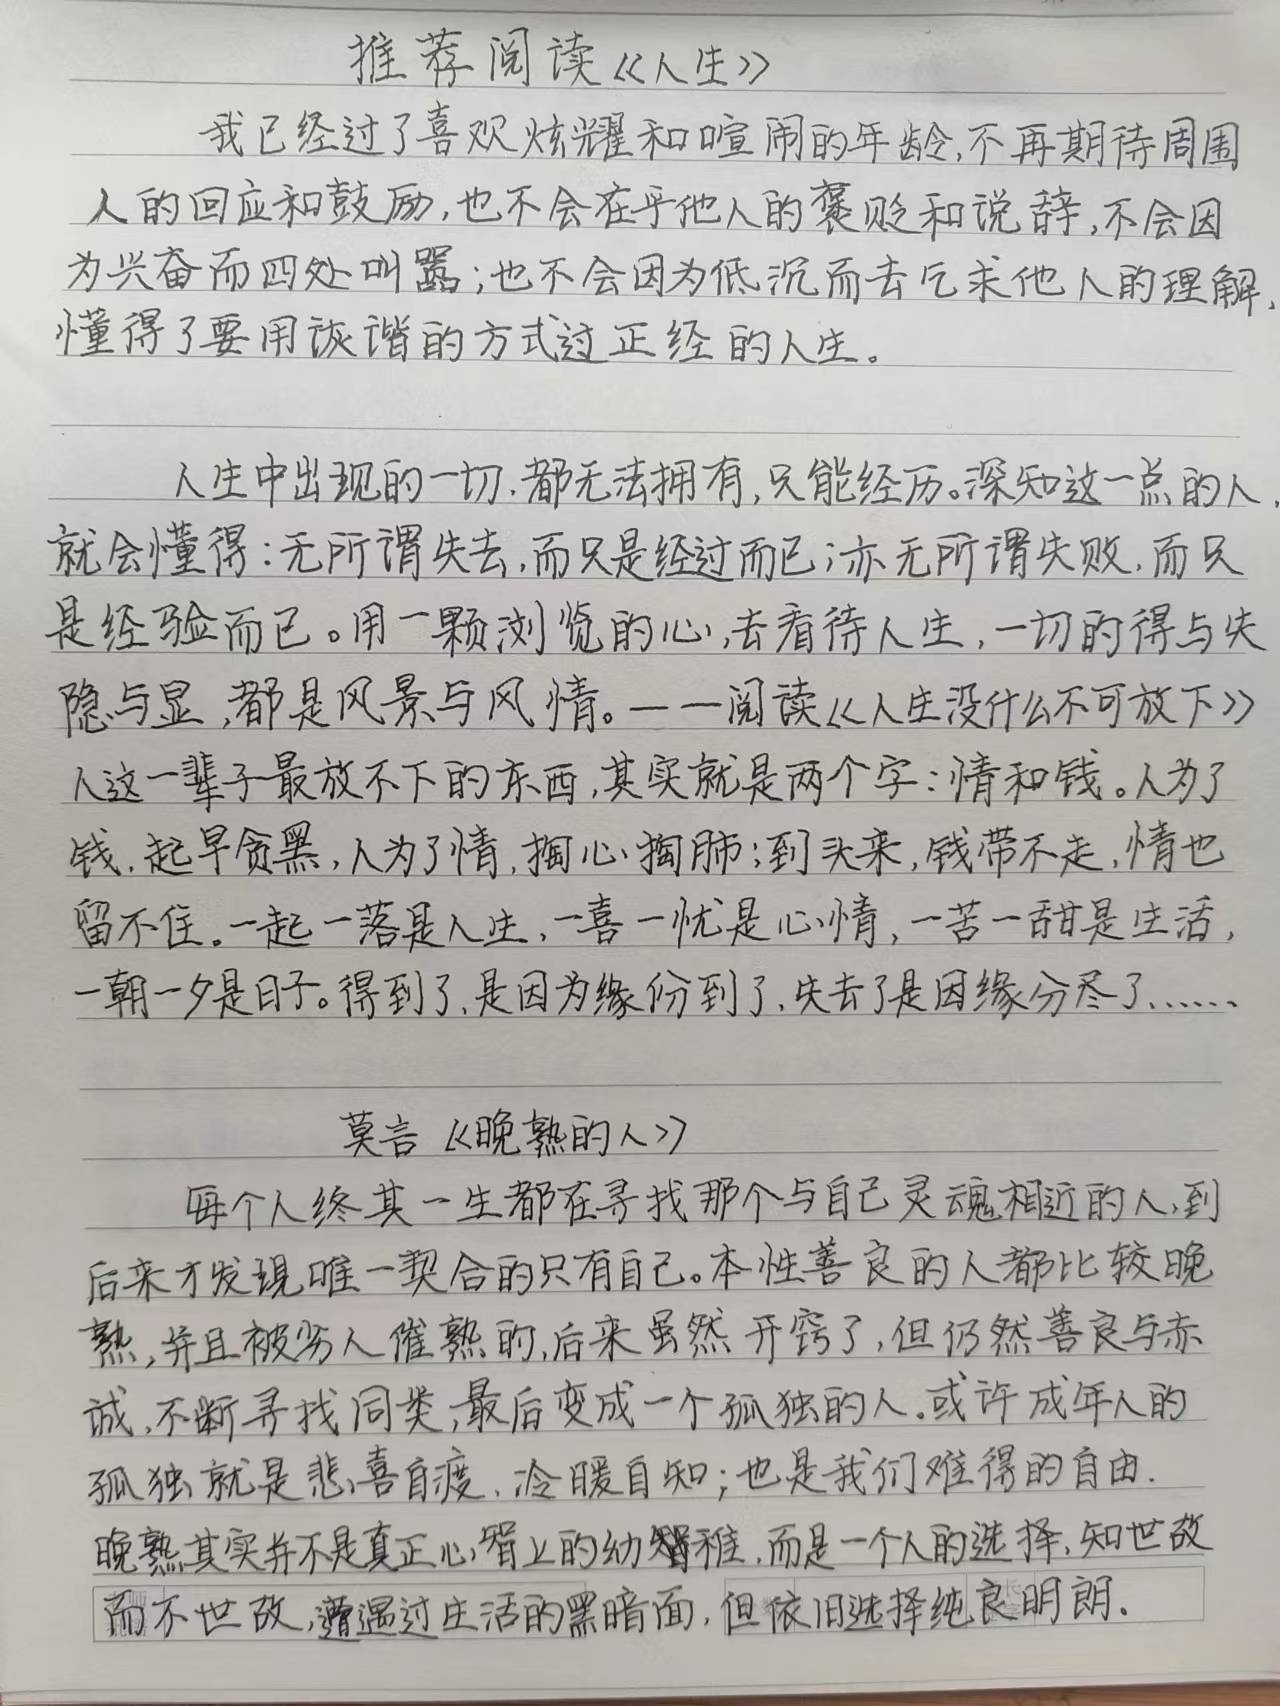 推荐阅读《人生》
我已经过了喜欢炫耀和喧闹的年龄,不再期待周围
人的回应和鼓励,也不会在乎他人的褒贬和说辞,不会因
为兴奋而四处叫嚣;也不会因为低沉而去乞求他人的理解,
懂得了要用诙谐的方式过正经的人生。
人生中出现的一切,都无法拥有,只能经历。深知这一点的人,
就会懂得:无所谓失去,而只是经过而已;亦无所谓失败,而只
是经验而已。用一颗浏览的心,去看待人生,一切的得与失
隐与显,都是风景与风情。——阅读《人生没什么不可放下》
人这一辈子最放不下的东西,其实就是两个字:情和钱。人为了
钱,起早贪黑,人为了情,掏心掏肺;到头来,钱带不走,情也
留不住。一起一落是人生,一喜一忧是心情,一苦一甜是生活,
一朝一夕是日子。得到了,是因为缘份到了,失去了是因缘分尽了……
莫言《晚熟的人》
每个人终其一生都在寻找那个与自己灵魂相近的人,到
后来才发现唯一契合的只有自己。本性善良的人都比较晚
熟,并且被劣人催熟的,后来虽然开窍了,但仍然善良与赤
诚,不断寻找同类,最后变成一个孤独的人。或许成年人的
孤独就是悲喜自渡,冷暖自知;也是我们难得的自由.
晚熟其实并不是真正心智上的幼稚,而是一个人的选择,知世故
而不世故,遭遇过生活的黑暗面,但依旧选择纯良明朗.